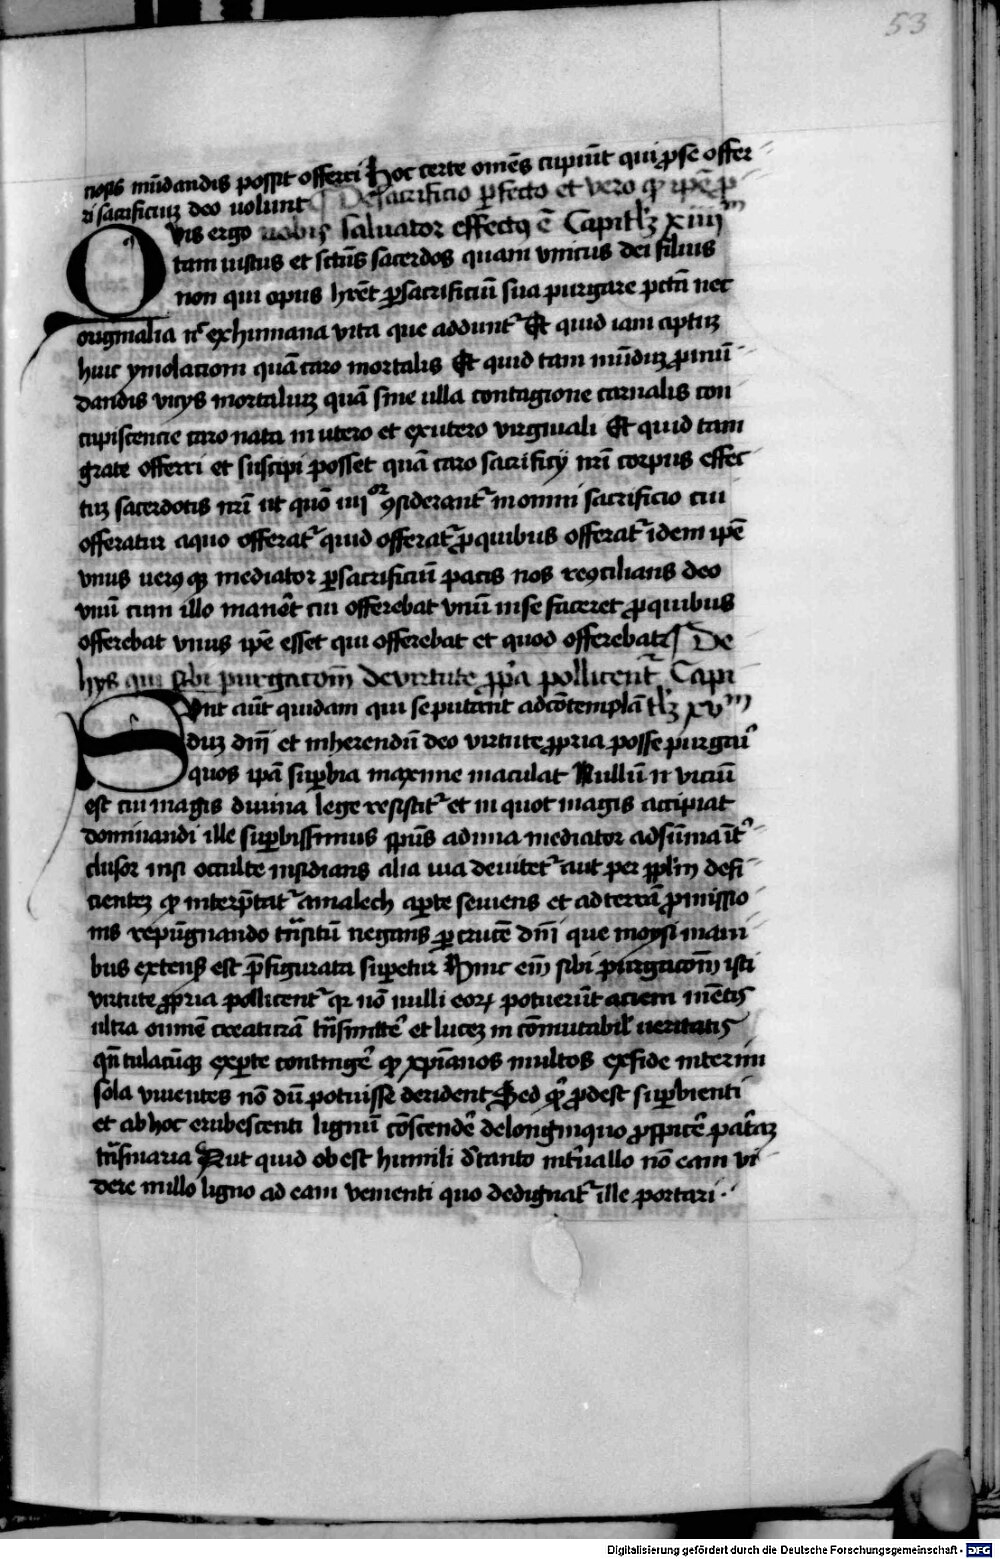 53
ciosis mūdandis possit offerri Hoc certe om̄es cupiūt qui ꝓ se offer
ri sacrificiuꝫ deo uolunt ¶ De sacrificio ꝑfecto et vero qđ ip̄e ꝓ
Qvis ergo nobis saluator effectꝰ ē Capitl̄ꝫ xiiijᵐ
tam iustus et sc̄tūs sacerdos quam vnicus dei filius
non qui opus hr̄et ꝑ sacrificiū sua purgare pctā nec
originalia nͨ ex humana vita que addunt᷑ Et quid iam aptiꝫ
huic ymolacioni quā caro mortalis Et quid tam mūdiꝫ ꝓ mū
dandis vicijs mortaliuꝫ quā sine ulla contagione carnalis con
cupiscencie caro nata in utero et ex utero virginali Et quid tam
grate offerri et suscipi posset quā caro sacrificij nr̄i corpus effec
tuꝫ sacerdotis nr̄i ut quō iiijᵒʳ ꝯsiderant᷑ in omni sacrificio cui
offeratur a quo offerat᷑ quid offerat᷑ ꝓ quibus offerat᷑ idem ip̄e
vnus uerꝰ qꝫ mediator ꝑ sacrificiū pacis nos reꝯcilians deo
vnū cum illo manēt cui offerebat vnū in se faceret ꝓ quibus
offerebat vnus ip̄e esset qui offerebat et quod offerebat ¶ De
hijs qui sibi purgacōm̄ de virtute ꝓp̄a pollicent᷑ Capi
Sunt aūt quidam qui se putant ad cōtemplā tl̄ꝫ xvᵐ
duꝫ dm̄ et inherendū deo virtute ꝓpria posse purgari
quos ip̄a suꝑbia maxime maculat Nullū n̄ viciū
est cui magis diuina lege resistit᷑ et in quot magis accipiat
dominandi ille suꝑbissimus sp̄us ad ima mediator ad sūma īt᷑
clusor nisi occulte insidians alia uia deuitet᷑ aut per ꝓpl̄m defi
cienteꝫ qđ interp̄tat᷑ amalech aꝑte seuiens et ad terrā ꝓmissio
nis repūgnando trn̄situ negans ꝑ crucē dn̄i que moysi mani
bus extensis est p̄figurata suꝑetur Hinc em̄ sibi purgacōm̄ isti
virtute ꝓpria pollicent᷑ qꝛ nō nulli eoꝝ potuerūt aciem mētis
ultra omnē creaturā trn̄smitte᷑ et luceꝫ incōmutabil᷑ ueritatis
qn̄tulacūqꝫ exꝑte continge᷑ qđ xp̄ianos multos ex fide interim
sola viuentes nō dū potuisse derident Sed qđ ꝓdest suꝑbienti
et ab hoc erubescenti lignū cōscende᷑ de longinquo ꝓspice᷑ pat᷑aꝫ
trn̄smaria Aut quid obest humili de tanto int᷑uallo nō eam vi
dere in illo ligno ad eam venienti quo dedignat᷑ ille portari ·
Digitalisierung gefördert durch die Deutsche Forschungsgemeinschaft - DFG